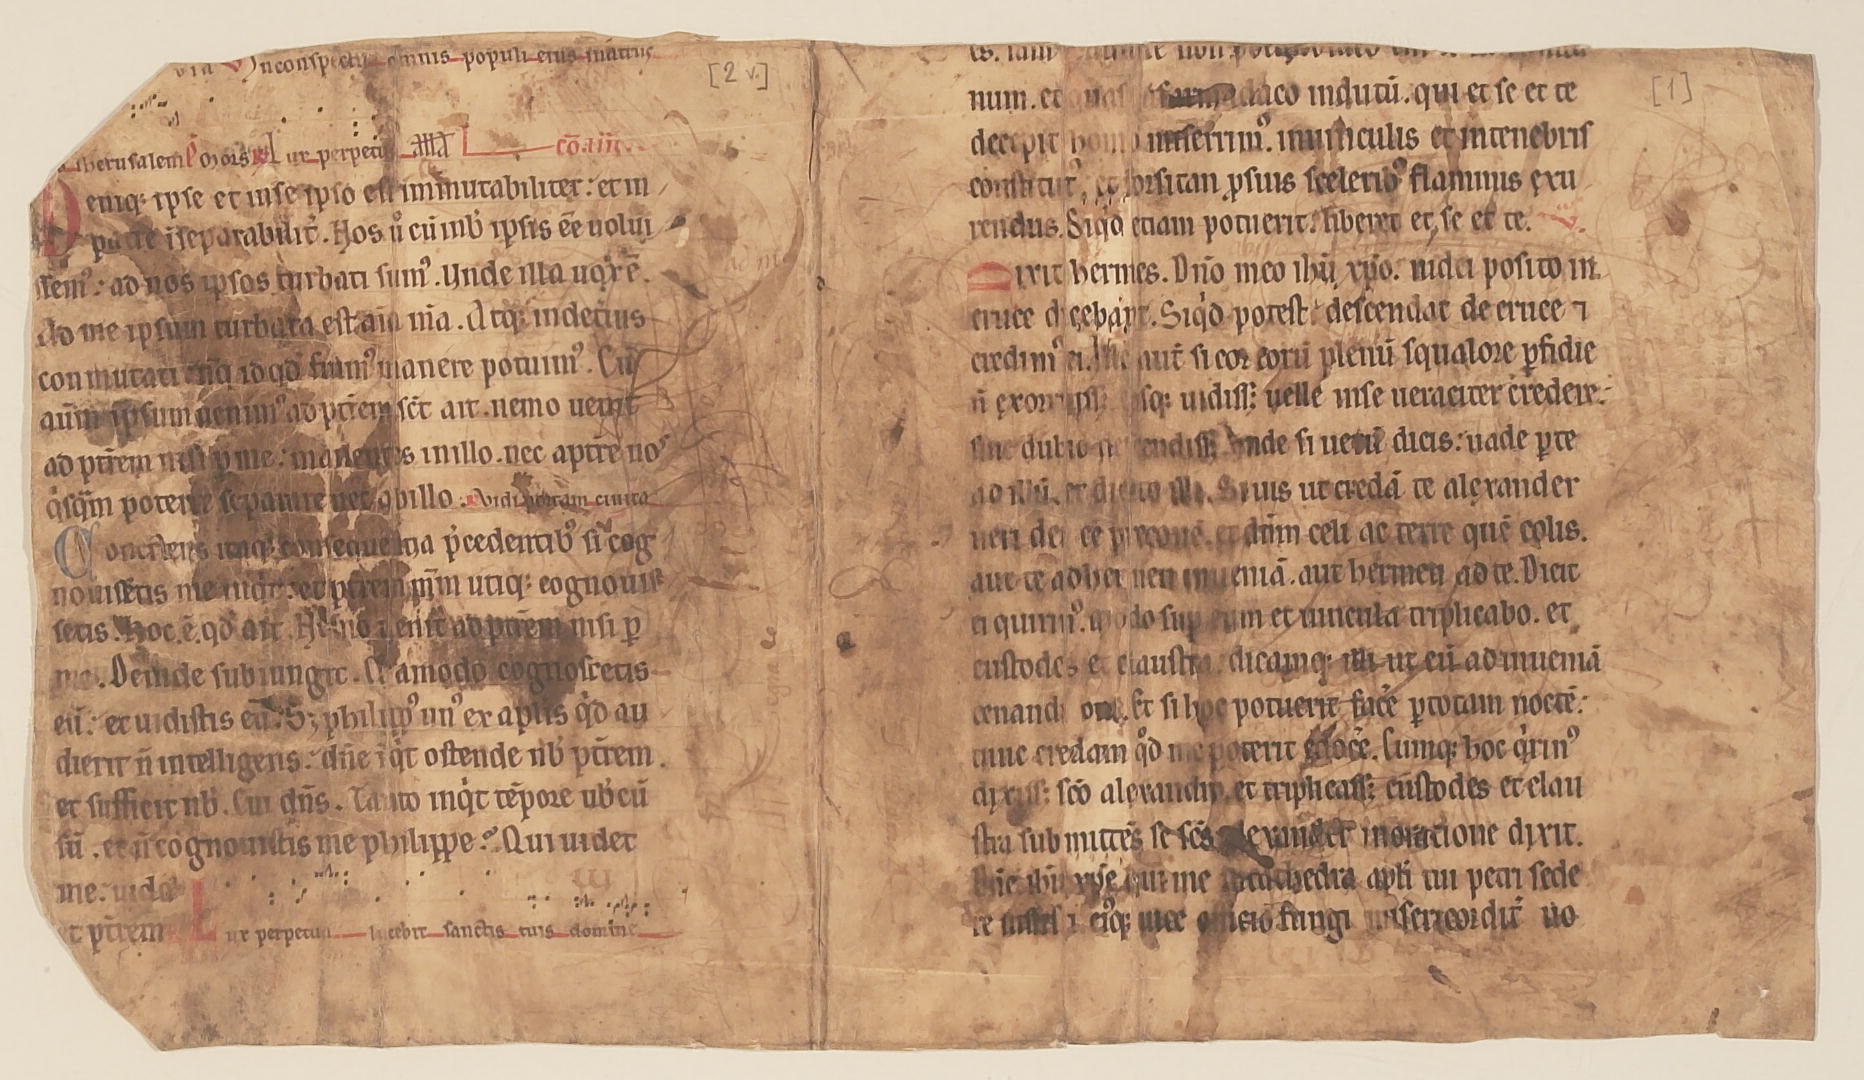 v Inconspectu omnis populi eius
[2 v.]
iherusalem Omis Lux perpetu a͞l͞l͞a L co. an.
Deniq; ipse et inse ipso est immutabiliter: et in
patre iseparabilit̃. Hos ů cũ inb̃ ipsis ẽe volui
ad nos ipsos turbati sumꝰ. Unde illa uox ẽ.
Ad me ipsum turbata est aĩa m̃a. Atq; indetius
conmutati manere potuimꝰ. Cũ
aũm ipsum uenimꝰ ad pr̃em sc̃t ait. nemo uenit
ad pr̃em nisi ꝑ me: manentes inillo. nec aptr̃e noꝰ
qͥsqͣm poterit separare nec abillo. Vidi portam ciuita
Conectens itaq; consequentia p̃cedentibꝰ si cog
nouissetis me inqͥt: et pr̃em m̃m utiq; cognouis
setis. Hoc.ẽ. qd̃ ait. uenit ad pr̃em nisi ꝑ
me. Deinde subiungit. Et amodo cognoscetis
eũ: et uidistis eũ. S; philippꝰ unꝰ ex apl̃is qd̃ au
dierit ñ intelligens: dñe iqͥt ostende nb̃ pr̃em.
et sufficit nb̃. Cui dñs. Tanto inqͥt tẽpore ubcũ
sũ. et ñ cognouistis me philippe? Qui uidet
me: uidet
et pr̃em Lux perpetua lucebit sanctis tuis domine
[1]
num. et quasi indutũ. qui et se et te
decepit homo miserrimꝰ. inuinculis et intenebris
constitutꝰ, et forsitan ꝓsuis sceleribꝰ flammis exu
rendus. Siqd̃ etiam potuerit: liberet et se et te.
Dixit hermes. Dñο meo ihũ xp̃o. uidei posito in
cruce dicebant. Siqd̃ potest: descendat de cruce ⁊
credimꝰ ei. Ille aut̃ si cor eorũ plenũ squalore ꝑfidie
ñ exorruiss; eosq; uidiss; uelle inse ueraciter credere:
sine dubio descendiss; Unde si uerũ dicis: uade ꝑte
ad illũ. et dicito illi. Si uis ut credã te alexander
ueri dei ẽe preconẽ. et dñm celi ac terre quẽ colis.
aut te adhermen inueniã. aut hermen ad te. Dicit
ei quirinꝰ. modo super eum et uincula triplicabo. et
custodes et claustra. dicamq; illi ut eũ ad inueniã
cenandi Et si hoc potuerit facẽ ꝑtotam noctẽ:
tunc credam qd̃ me poterit edocẽ. Cumq; hoc qͥrinꝰ
dixiss; sc̃o alexandro. et triplicass; custodes et clau
stra submittẽs se sc̃s alexander inoratione dixit.
Dñe ihũ xp̃e qui me incathedra apl̃i tui petri sede
re iussisti ⁊ eiꝰq; uice officio fungi misericordit̃ uo